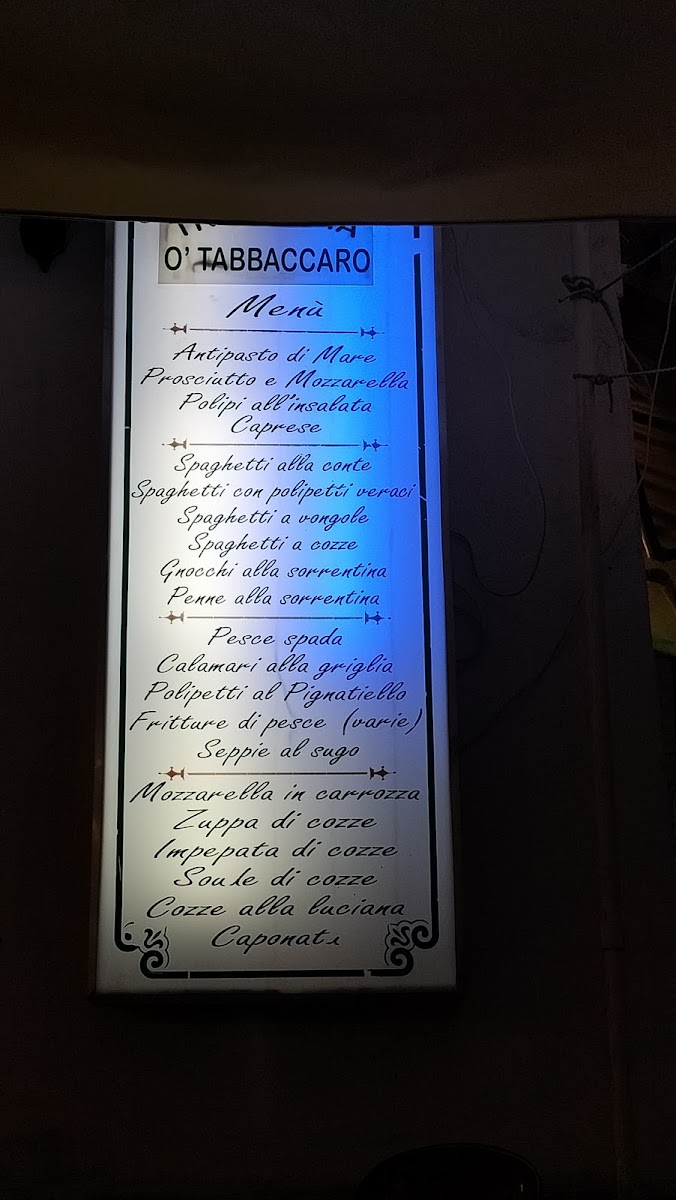 O' TABBACCARO
Menù
Antipasto di Mare
Prosciutto e Mozzarella
Polipi all'insalata
Caprese
Spaghetti alla conte
Spaghetti con polipetti veraci
Spaghetti a vongole
Spaghetti a cozze
Gnocchi alla sorrentina
Penne alla sorrentina
Pesce spada
Calamari alla griglia
Polipetti al Pignatiello
Fritture di pesce (varie)
Seppie al sugo
Mozzarella in carrozza
Zuppa di cozze
Impepata di cozze
di cozze
Cozze alla luciana